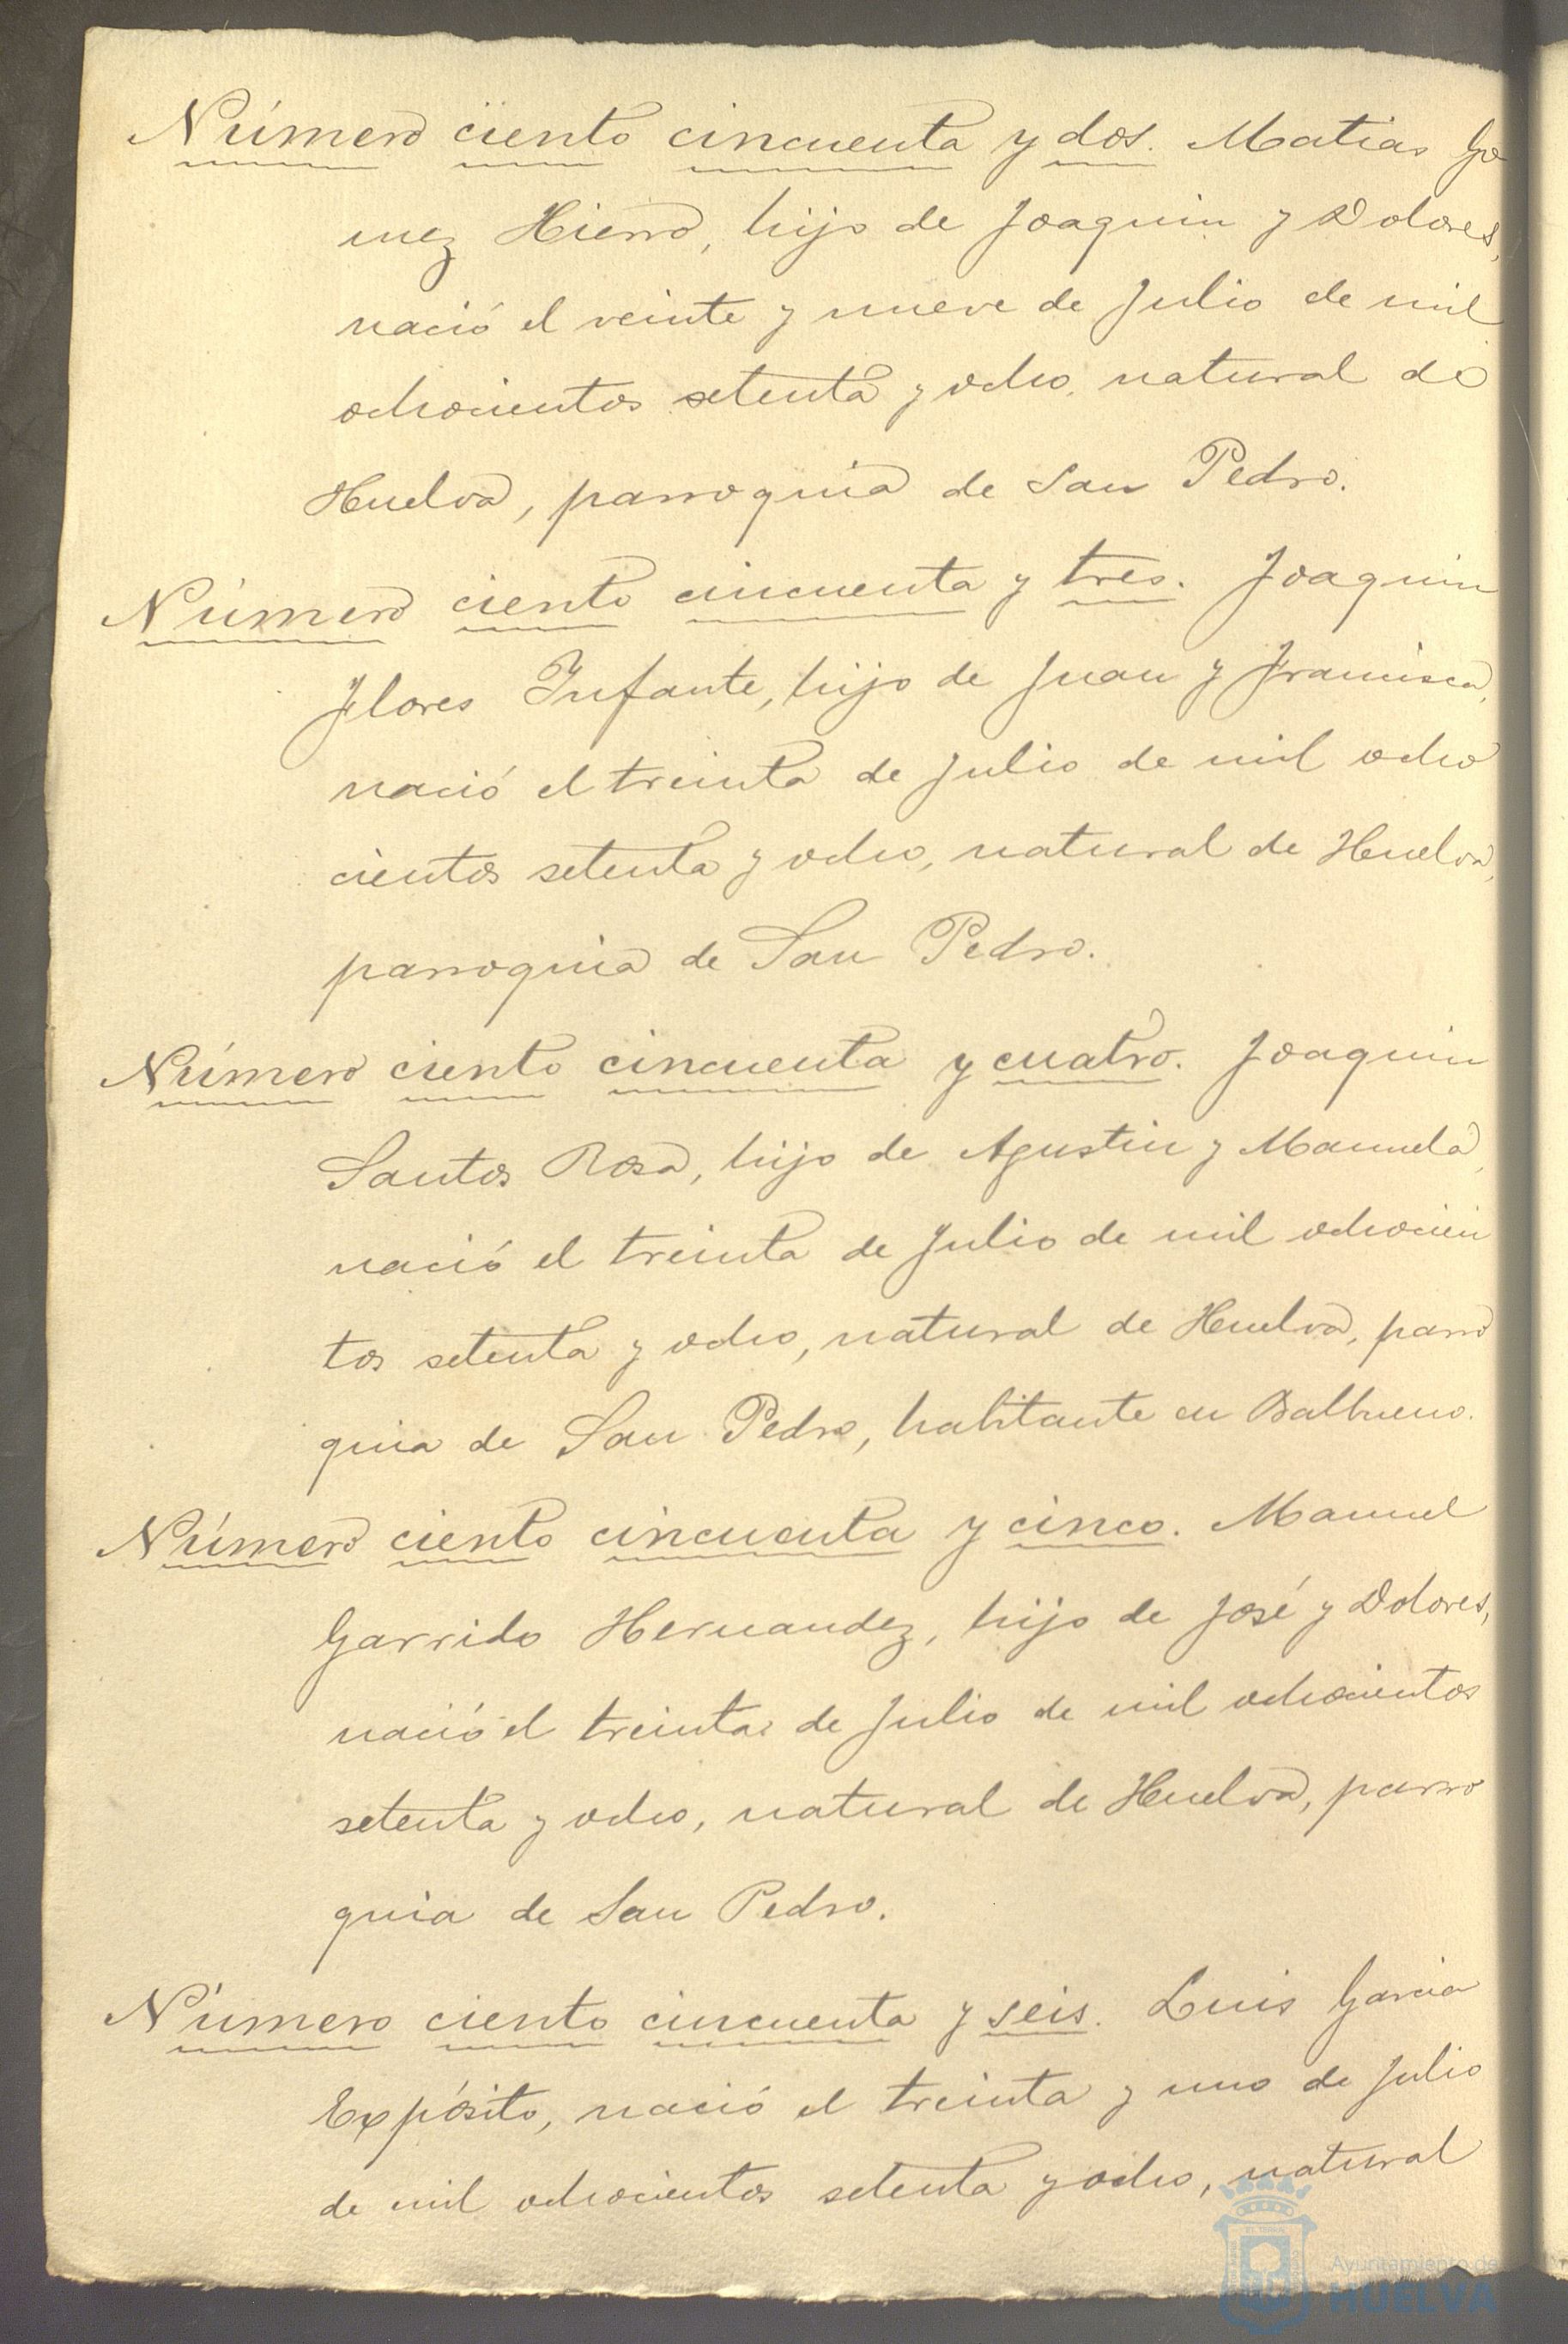 Número ciento cincuenta y dos. Matias Go
mez Hierro, hijo de Joaquin y Dolores,
nació el veinte y nueve de Julio de mil
ochocientos setenta y ocho, natural de
Huelva, parroquia de San Pedro.
Número ciento cincuenta y tres. Joaquin
Flores Infante, hijo de Juan y Francisca,
nació el treinta de Julio de mil ocho
cientos setenta y ocho, natural de Huelva,
parroquia de San Pedro.
Número ciento cincuenta y cuatro. Joaquin
Santos Rosa, hijo de Agustin y Manuela,
nació el treinta de Julio de mil ochocien
tos setenta y ocho, natural de Huelva, parro
quia de San Pedro, habitante en Balbueno.
Número ciento cincuenta y cinco. Manuel
Garrido Hernandez, hijo de José y Dolores,
nació el treinta de Julio de mil ochocientos
setenta y ocho, natural de Huelva, parro
quia de San Pedro.
Número ciento cincuenta y seis. Luis Garcia
Expósito, nació el treinta y uno de Julio
de mil ochocientos setenta y ocho, natural
Ayuntamiento de
HUELVA